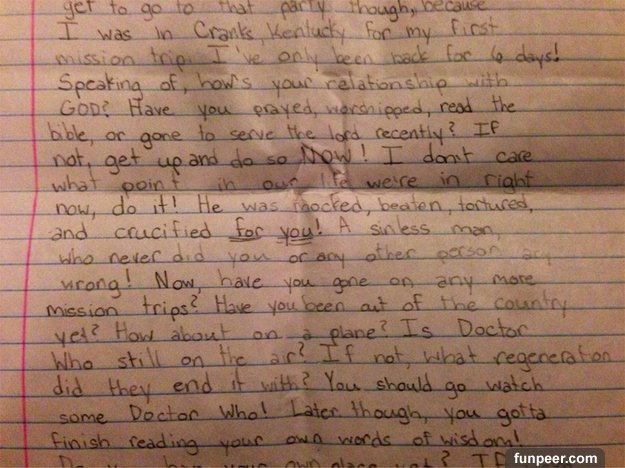 get to go to that party though, because
I was in Cranks, Kentucky for my first
mission trip. I've only been back for 6 days!
Speaking of, how's your relationship with
GOD? Have you prayed, worshipped, read the
bible, or gone to serve the lord recently? If
not, get up and do so NOW! I don't care
what point in our life we're in right
now, do it! He was mocked, beaten, tortured,
and crucified for you! A sinless man,
who never did you or any other person any
wrong! Now, have you gone on any more
mission trips? Have you been out of the country
yet? How about on a plane? Is Doctor
Who still on the air? If not, what regeneration
did they end it with? You should go watch
some Doctor Who! Later though, you gotta
finish reading your own words of wisdom!
Do you have your own place yet? If
funpeer.com